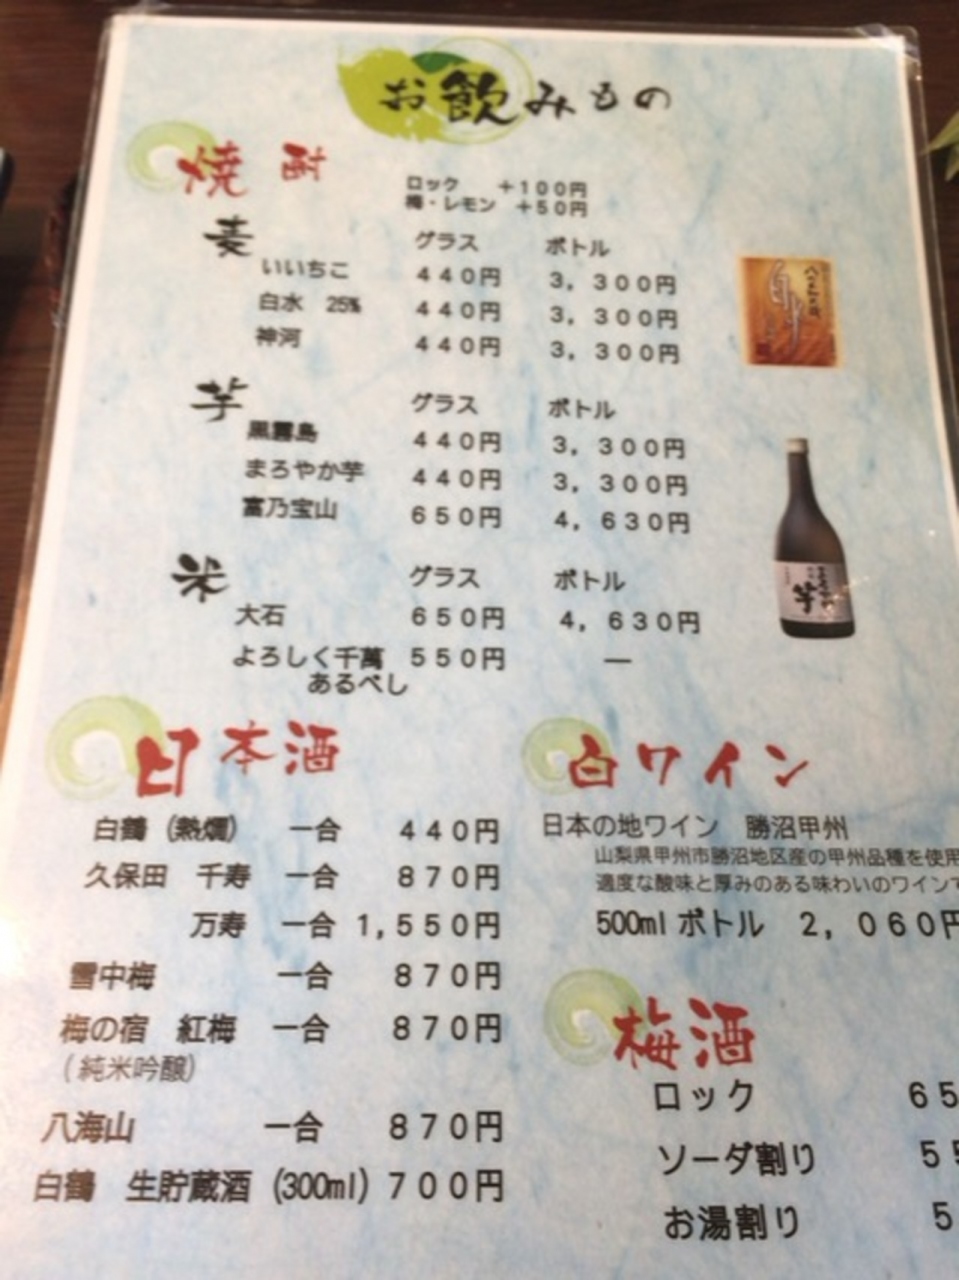 お飲みもの
焼酎
ロック ＋１００円
梅・レモン ＋５０円
麦 グラス ボトル
いいちこ ４４０円 ３，３００円
白水 25% ４４０円 ３，３００円
神河 ４４０円 ３，３００円
芋 グラス ボトル
黒霧島 ４４０円 ３，３００円
まろやか芋 ４４０円 ３，３００円
富乃宝山 ６５０円 ４，６３０円
米 グラス ボトル
大石 ６５０円 ４，６３０円
よろしく千萬 ５５０円 ―
あるべし
日本酒
白鶴（熱燗） 一合 ４４０円
久保田 千寿 一合 ８７０円
万寿 一合 １，５５０円
雪中梅 一合 ８７０円
梅の宿 紅梅 一合 ８７０円
（純米吟醸）
八海山 一合 ８７０円
白鶴 生貯蔵酒 (300ml) ７００円
白ワイン
日本の地ワイン 勝沼甲州
山梨県甲州市勝沼地区産の甲州品種を使用
適度な酸味と厚みのある味わいのワインで
500ml ボトル ２，０６０円
梅酒
ロック ６５
ソーダ割り ５５
お湯割り ５
芋